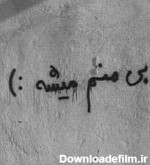 بی منم میشه :)
Downloadefilm.ir